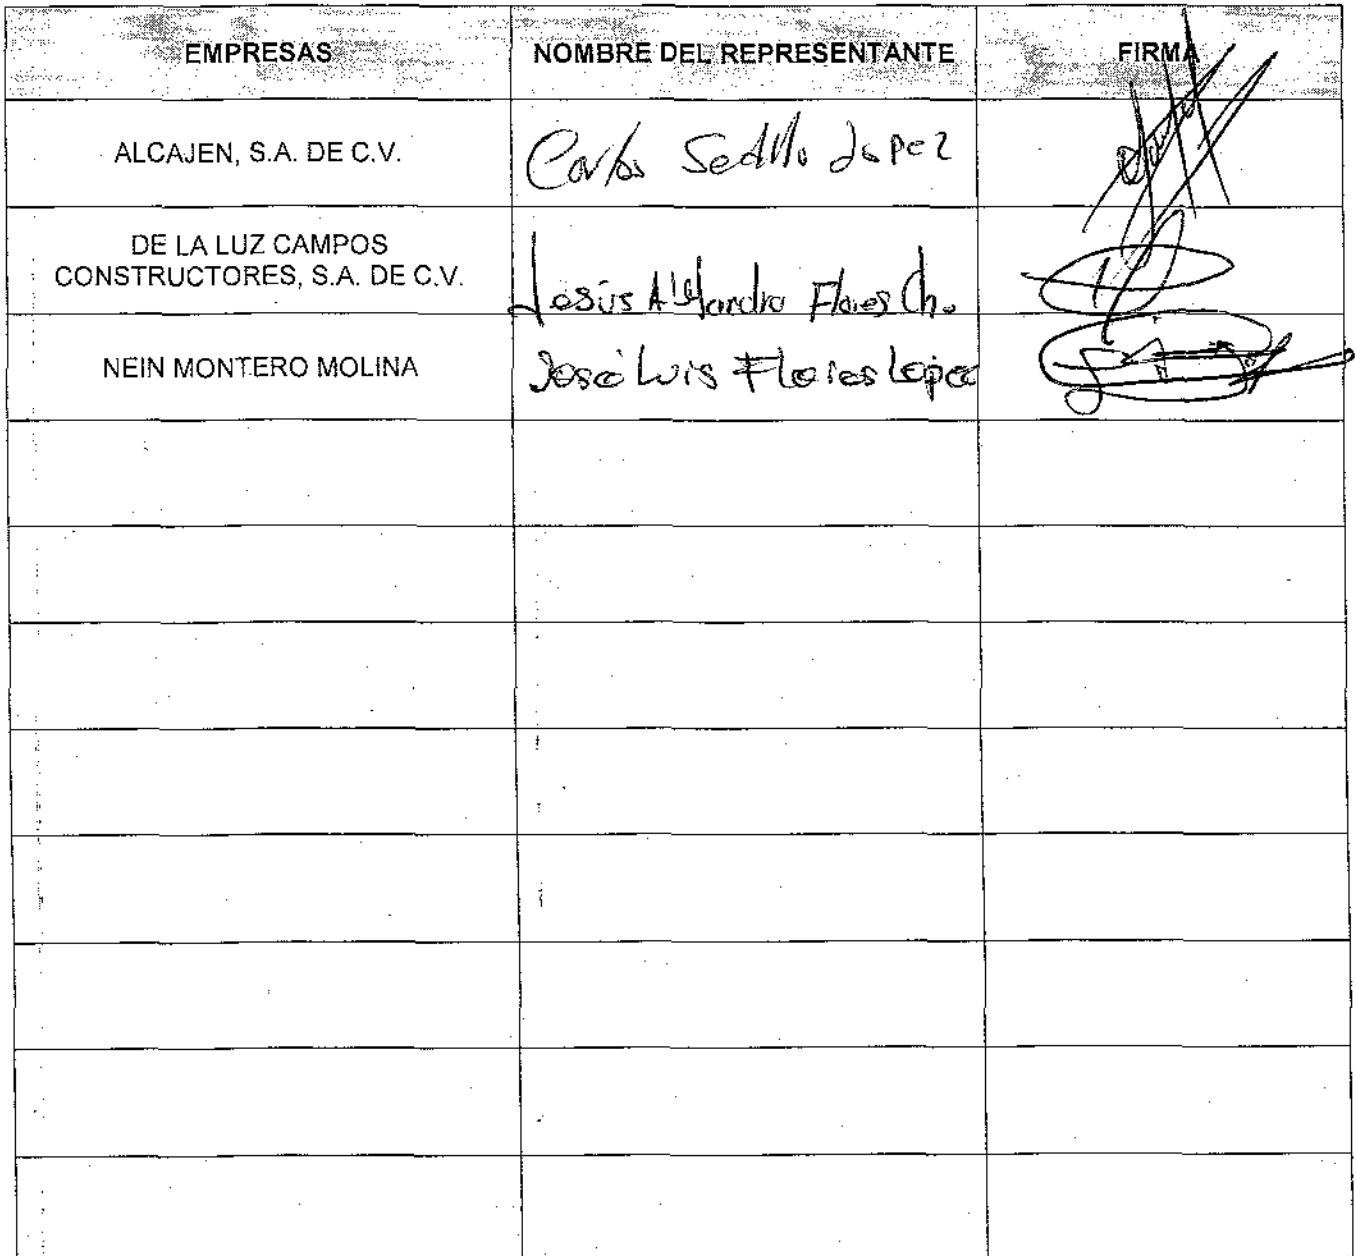 EMPRESAS NOMBRE DEL REPRESENTANTE FIRMA
ALCAJEN, S.A. DE C.V. Carlos Sedillo Lopez
DE LA LUZ CAMPOS
CONSTRUCTORES, S.A. DE C.V. Jesús Alejandro Flores Ch.
NEIN MONTERO MOLINA José Luis Flores López